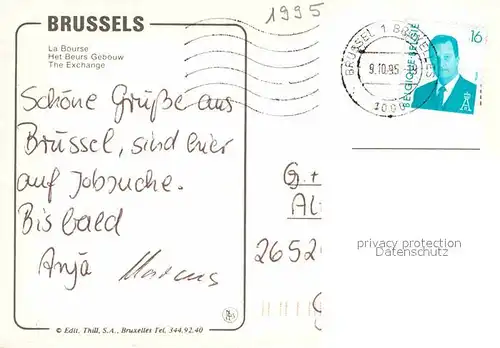 BRUSSELS
La Bourse
Het Beurs Gebouw
The Exchange
1995
BRUSSEL 1 BRUXELLES
9.10.95
1000
16
BELGIQUE-BELGIË
Schöne Grüße aus
Brüssel, sind hier
auf Jobsuche.
Bis bald
Anja Markus
G. +
Al
2652
privacy protection
Datenschutz
© Edit. Thill, S.A., Bruxelles Tel. 344.92.40